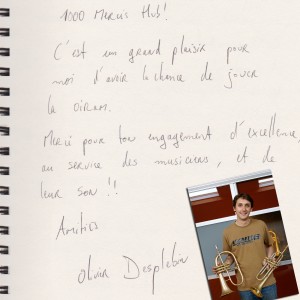 1000 Mercis Hub!
C'est un grand plaisir pour
moi d'avoir la chance de jouer
la OIRAM.
Merci pour ton engagement d'excellence,
au service des musiciens, et de
leur son !!
Amitiés